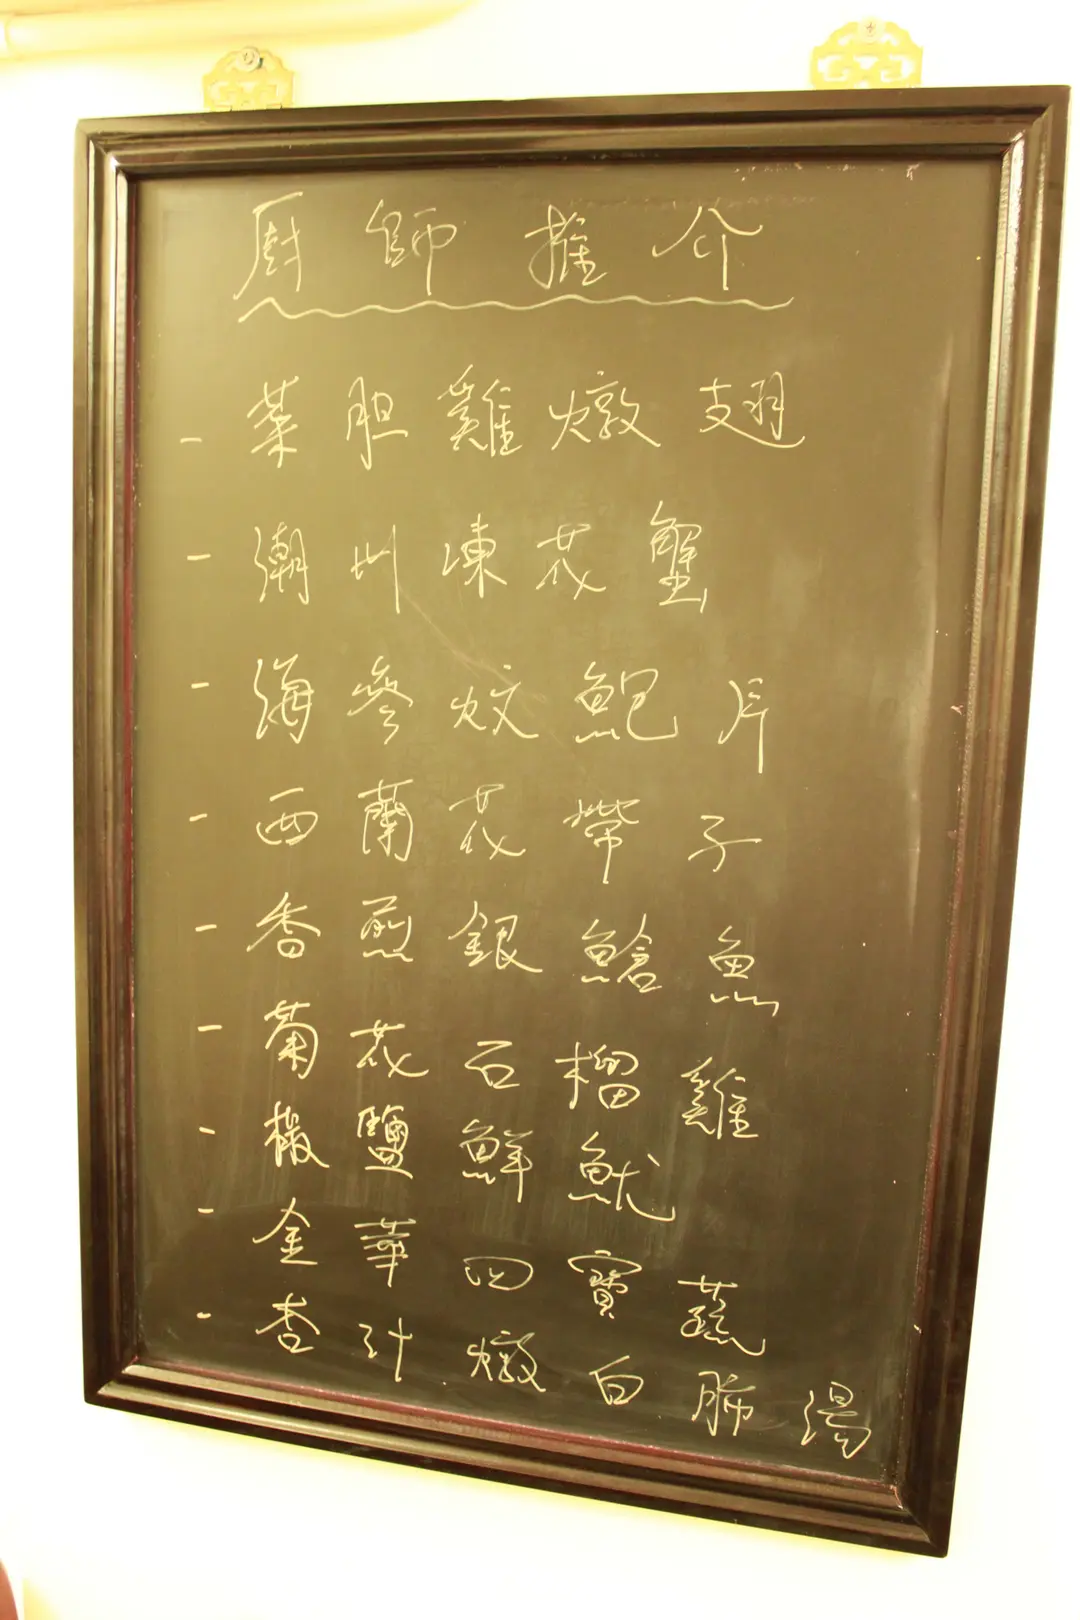 廚師推介
- 菜胆雞燉翅
- 潮州凍花蟹
- 海參炆鮑片
- 西蘭花帶子
- 香煎銀鱈魚
- 菊花石榴雞
- 椒鹽鮮魷
- 金華四寶蔬
- 杏汁燉白肺湯